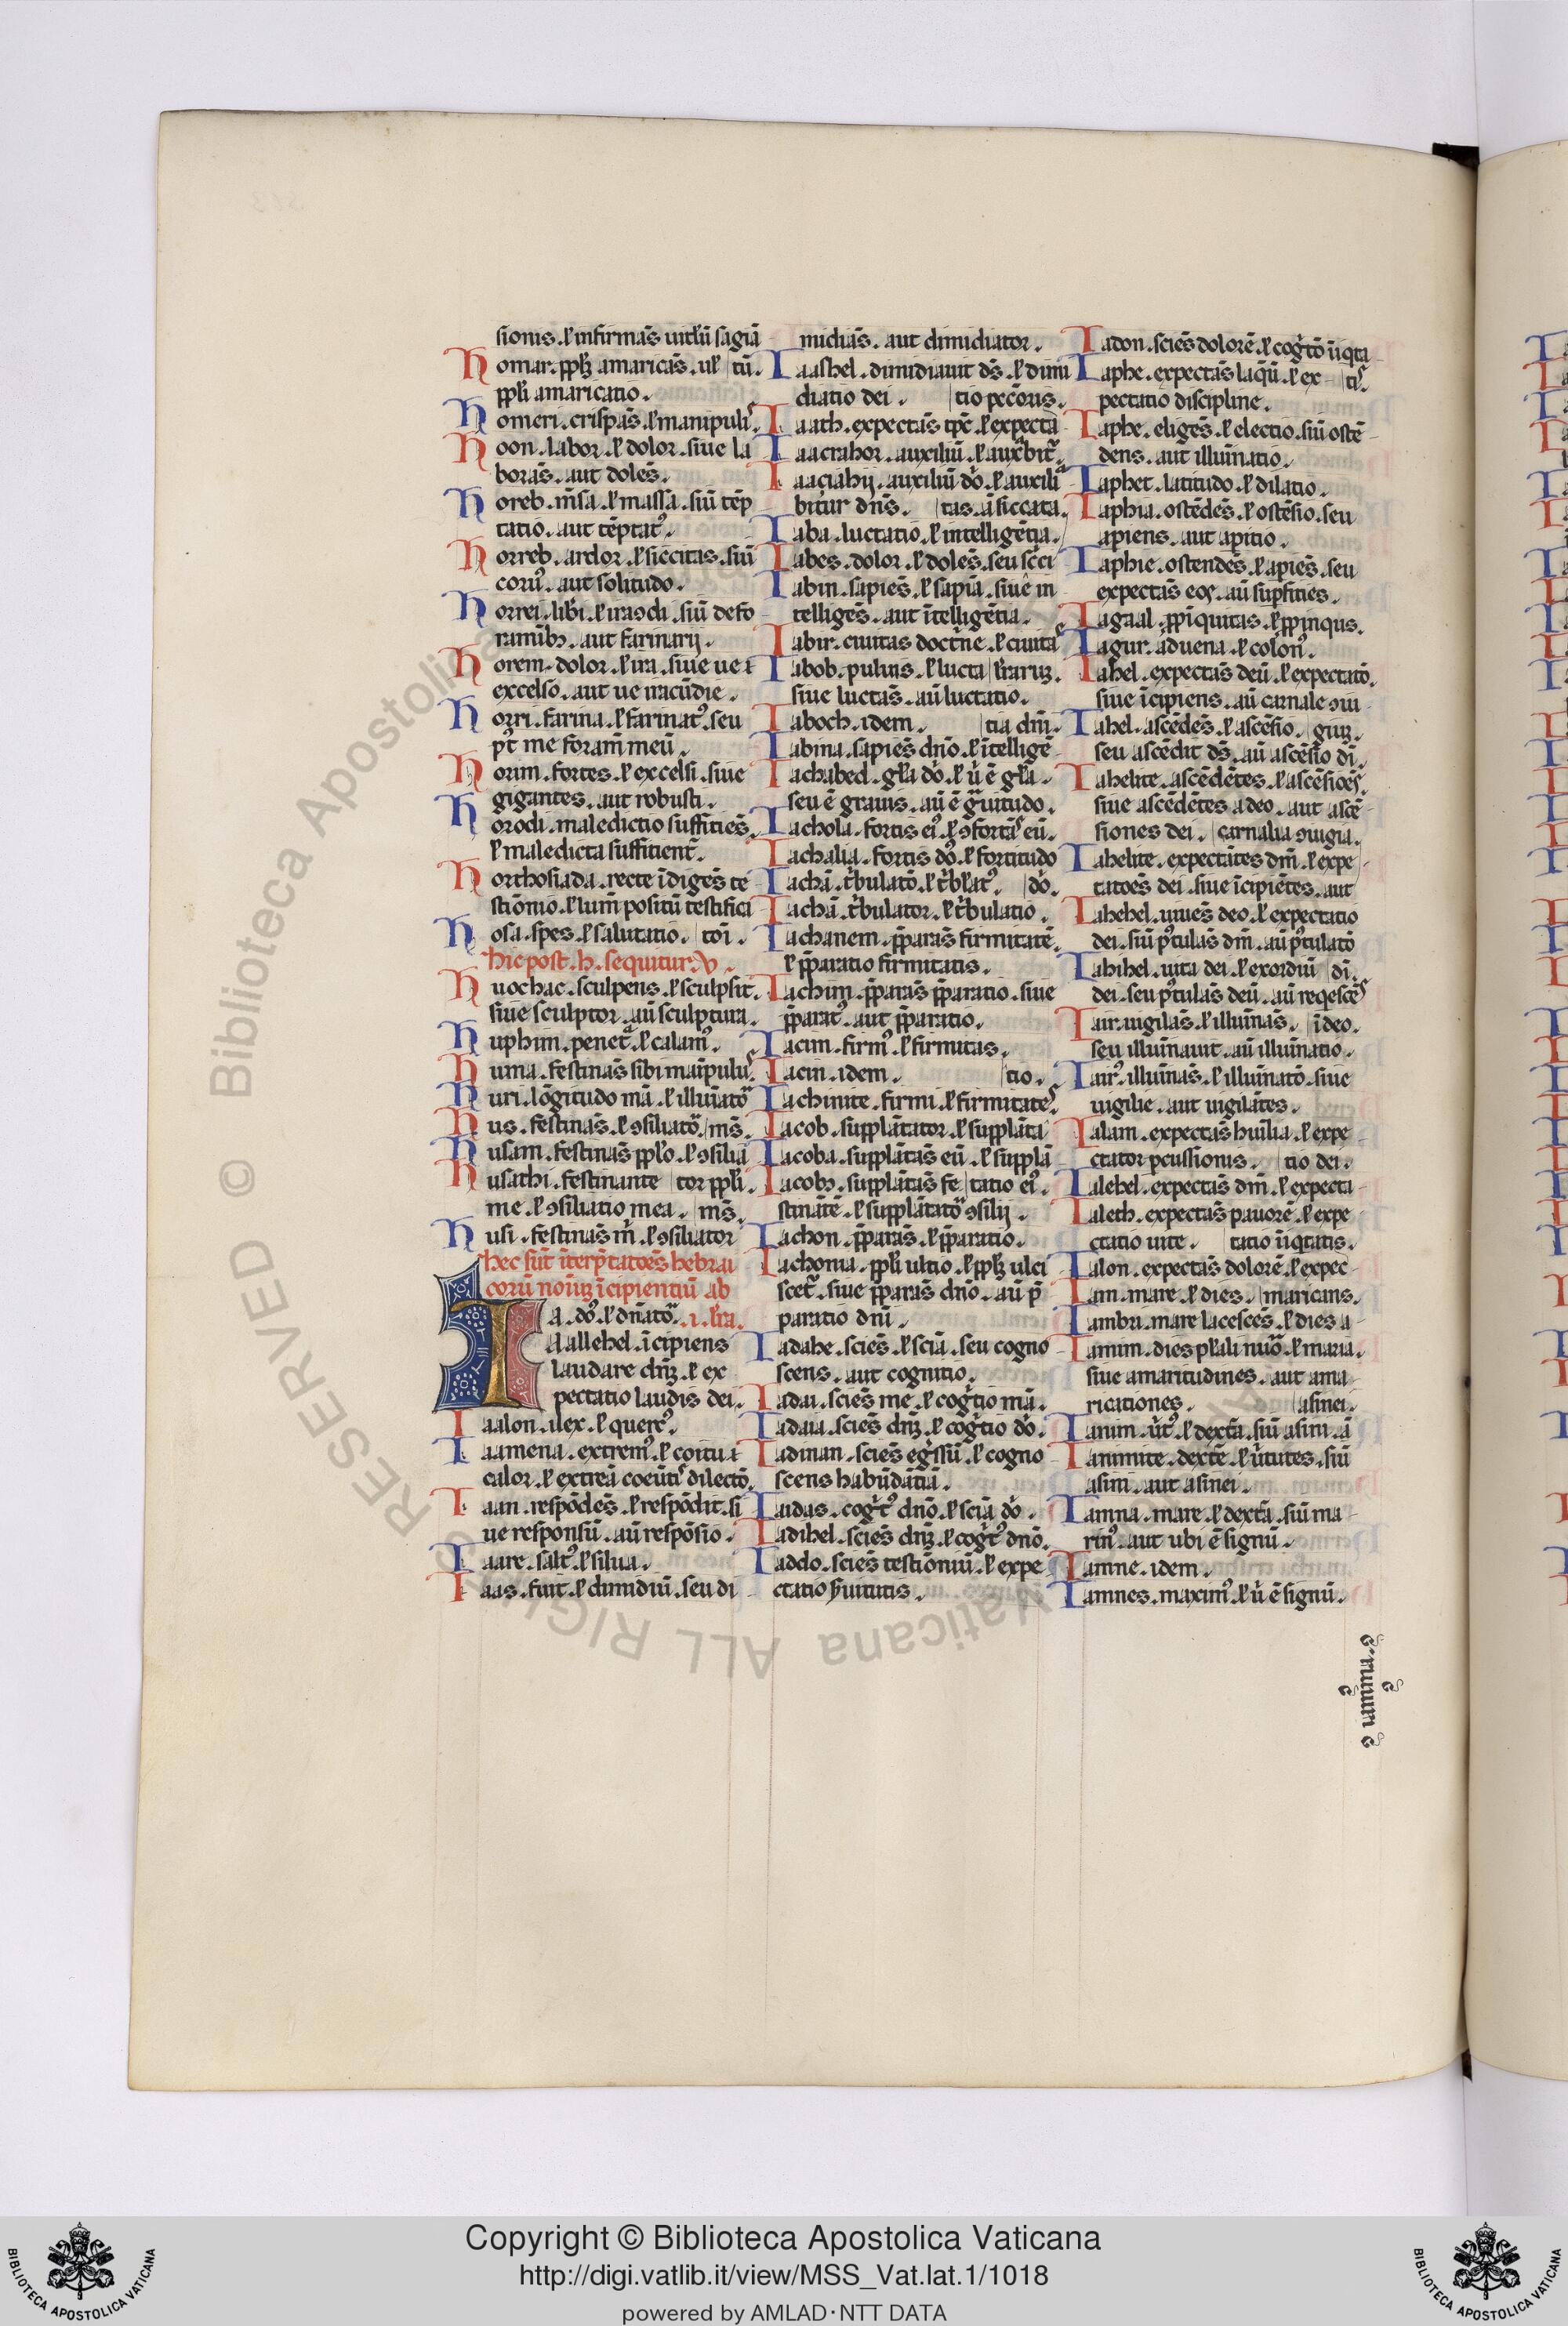 sionis. ł infirmās uitłū sagiā
Homar. ppłs amaricās. uł | tū.
ppłi amaricatio.
Homeri. crispās. ł manipuli.
Hoon. labor. ł dolor. siue la
borās. aut dolēs.
Horeb. m̄sa. ł massa. siū tēp
tatio. aut tēptatꝰ.
Horreb. ardor. ł siccitas. siū
coruꝰ. aut solitudo.
Horrei. libi. ł iraꝯdi. siū defo
ramībꝫ. aut farinarij.
Horem. dolor. ł ira. siue ue i
excelso. aut ue iracūdie.
Horri. farina. ł farinatꝰ. seu
pt̄ me foram̄ meū.
Horim. fortes. ł excelsi. siue
gigantes. aut robusti.
Horodi. maledictio sufficiēs.
ł maledicta sufficient̄.
Horthosiada. recte īdigēs te
stionio. ł lum̄ positū testifici
Hosa. spes. ł salutatio. | toī.
hic post. h. sequitur. v.
Huochac. sculpens. ł sculpsit.
siue sculptor. aū sculptura.
Huphim. penet̄. ł calamꝰ.
Huma. festinās sibi maīpulu
Huri. lōgitudo mā. ł illuīatō
Hus. festinās. ł ꝯsiliatō. | ms̄.
Husam. festinās ppło. ł ꝯsilia
Husathi. festinante | tor ppłi.
me. ł ꝯsiliatio mea. | ms̄.
Husi. festinās m̄. ł ꝯsiliator
hec sūt īterp̄tatōēs hebrai
corū noīuꝫ īcipientiū ab
Ia. dōꝰ. ł dn̄atō. .i. łra.
Iaallehel. īcipiens
laudare dn̄ꝫ. ł ex
pectatio laudis dei.
Iaalon. ilex. ł quercꝰ.
Iaamena. extremꝰ. ł coitu i
calor. ł extreā coeūt dilectō.
Iaan. respōdēs. ł respōdit. si
ue responsū. aū respōsio.
Iaare. saltꝰ. ł silua.
Iaas. fuit. ł dimidiū. seu di
midiās. aut dimidiator.
Iaashel. dimidiauit ds̄. ł dimi
diatio dei. | tio pec̄oris.
Iaath. expectās tp̄c. ł expecta
Iaacrahor. auxiliū. ł auxbit̄.
Iaaciahij. auxiliū dō. ł auxili
bitur dn̄s. | tas. ā siccata.
Iaba. luctatio. ł intelligētia.
Iabes. dolor. ł dolēs. seu sc̄ci
Iabin. sapiēs. ł sapiā. siue in
telligēs. aut ītelligētia.
Iabir. ciuitas doctrīne. ł ciuita
Iabob. puluis. ł lucta | łraruꝫ.
siue luctās. aū luctatio.
Iaboch. idem. | tia dn̄i.
Iabina. sapiēs dn̄o. ł ītelligē
Iachabed. gła dō. ł ū ē gła.
seu ē grauis. aū ē guitudo.
Iachola. fortis eiꝰ. ł ꝯfortāt eū.
Iachalia. fortis dōꝰ. ł fortitudo
Iachā. t̄bulatō. ł t̄błatꝰ. | dō.
Iachā. t̄bulator. ł t̄bulatio.
Iachanem. p̄parās firmitatē.
ł p̄paratio firmitatis.
Iachim. p̄parās p̄paratio. siue
p̄paratꝰ. aut p̄paratio.
Iacim. firmꝰ. ł firmitas.
Iacin. idem. | tio.
Iachinite. firmi. ł firmitate
Iacob. supplātator. ł supplāta
Iacoba. supplātās eū. ł supplā
Iacobꝫ. supplātās fe | tatio eiꝰ.
stinātē. ł supplātatō ꝯsilij.
Iachon. p̄parās. ł p̄paratio.
Iachonia. ppłi ultio. ł ppłꝫ ulci
scet̄. siue p̄parās dn̄o. aū p̄
paratio dn̄i.
Iadahe. sciēs. ł sciā. seu cogno
scens. aut cognitio.
Iadai. sciēs me. ł cogt̄io mā.
Iadaia. sciēs dn̄ꝫ. ł cogt̄io dō.
Iadinan. sciēs eḡssū. ł cogno
scens habūdatiā.
Iaidas. coḡtꝰ dn̄o. ł sciā dō.
Iadihel. sciēs dn̄ꝫ. ł coḡtꝰ dn̄o.
Iaddo. sciēs testiōniū. ł expe
ctatio s̄uitutis.
Iadon. sciēs dolorē. ł cogt̄o ūq̄ta
Iaphe. expectās laq̄ū. ł ex | ti.
pectatio discipline.
Iaphe. eligēs. ł electio. siū ostē
dens. aut illuīnatio.
Iaphet. latitudo. ł dilatio.
Iaphia. ostēdēs. ł ostēsio. seu
apiens. aut apitio.
Iaphie. ostendēs. ł apiēs. seu
expectās eos. aū supficiēs.
Iagaal. ppīquitas. ł ppinqus.
Iagur. aduena. ł colōnꝰ.
Iahel. expectās deū. ł expectatō.
siue īcipiens. aū carnale ꝯiu
Iahel. ascēdēs. ł ascēsio. | giuꝫ.
seu ascēdit ds̄. aū ascēsio dī.
Iahelite. ascēdētes. ł ascēsiōes
siue ascēdētes a deo. aut ascē
siones dei. | carnalia ꝯiugia.
Iahelite. expectātes dm̄. ł expe
tatōēs dei. siue īcipiētes. aut
Iahehel. uiuēs deo. ł expectatio
dei. siū pꝰtulās dm̄. aū pꝰtulatō
Iahihel. uita dei. ł exordiū | dī.
dei. seu pꝰtulās deū. aū reqescēs
Iair. uigilās. ł illuīnās. | ī deo.
seu illuīnauit. aū illuīnatio.
Iairꝰ. illuīnās. ł illuīnatō. siue
uigilie. aut uigilātes.
Ialam. expectās huīlia. ł expe
ctator pcussionis. | tio dei.
Ialehel. expectās dm̄. ł expecta
Ialeth. expectās pauorē. ł expe
ctatio uite. | tatio ūq̄tatis.
Ialon. expectās dolorē. ł expec
Iam. mare. ł dies. | maricans.
Iambri. mare lacescēs. ł dies a
Iamim. dies płali nūō. ł maria.
siue amaritudines. aut ama
ricationes. | asinei.
Iamin. ūtꝰ. ł dextā. siū asini. ā
Ianimite. dextē. ł ūtutes. siū
asini. aut asinei.
Iamna. mare. ł dextā. siū ma
rinꝰ. aut ubi ē signū.
Iamne. idem.
Iamnes. maximꝰ. ł ū ē signū.
iamina.
Copyright © Biblioteca Apostolica Vaticana
http://digi.vatlib.it/view/MSS_Vat.lat.1/1018
powered by AMLAD·NTT DATA
BIBLIOTECA APOSTOLICA VATICANA
BIBLIOTECA APOSTOLICA VATICANA
Biblioteca Apostolica Vaticana ALL RIGHTS RESERVED ©